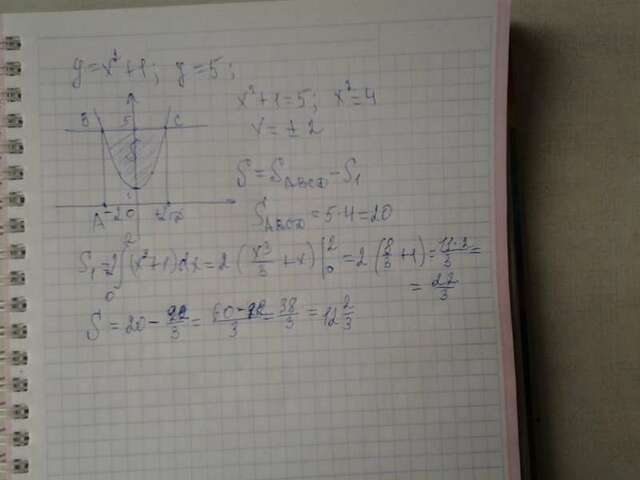 y=x²+1; y=5;
x²+1=5; x²=4
x=±2
B 5 C
S
1
A -2 0 2 D
S=S_ABCD-S₁
S_ABCD=5·4=20
S₁=2∫₀²(x²+1)dx=2(x³/3+x)|₀²=2(8/3+1)=11·2/3=
=22/3
S=20-22/3=60-22/3=38/3=12 2/3